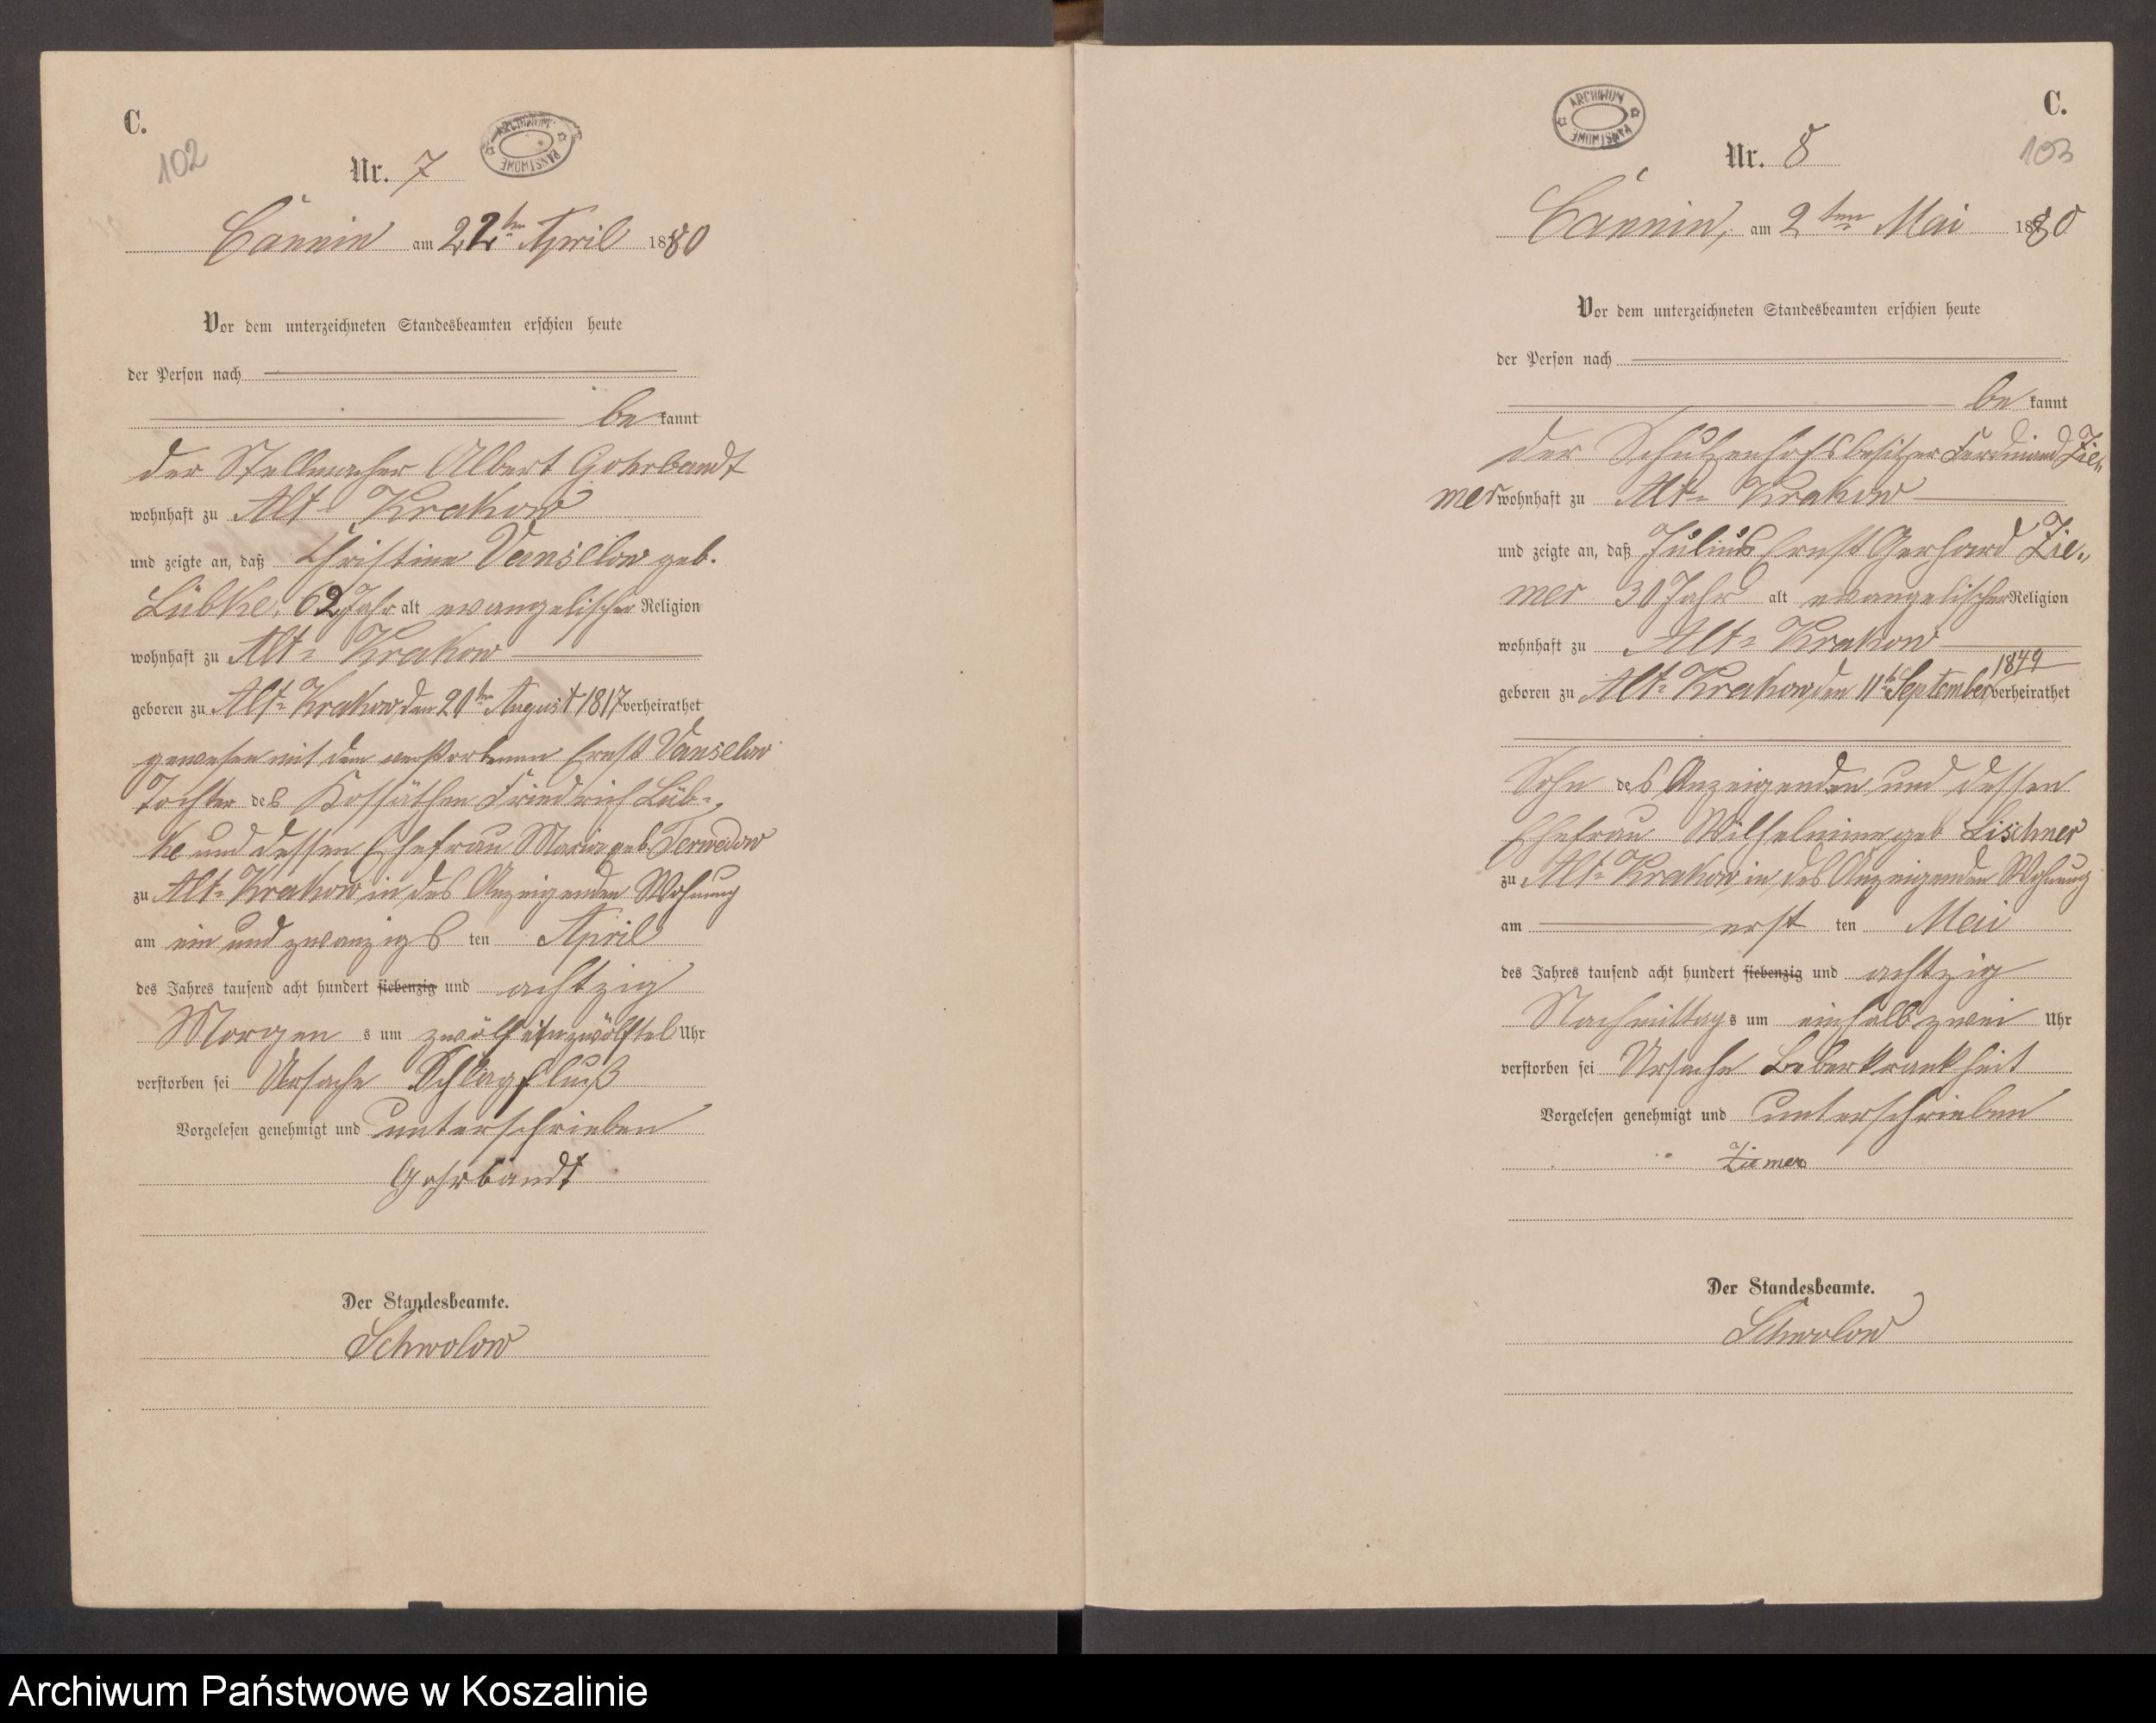 C.
102
ARCHIWUM PAŃSTWOWE
Nr. 7
Cännin am 22ten April 1880
Vor dem unterzeichneten Standesbeamten erschien heute
der Person nach
be kannt
der Stellmacher Albert Gohrbandt
wohnhaft zu Alt-Krakow
und zeigte an, daß Christine Vanselow geb.
Lübke, 62 Jahr alt evangelischer Religion
wohnhaft zu Alt-Krakow
geboren zu Alt-Krakow, den 20ten August 1817 verheirathet
gewesen mit dem verstorbenen Ernst Vanselow
Tochter des Kossäthen Friedrich Lüb-
ke und dessen Ehefrau Marie geb.
zu Alt-Krakow in des Anzeigenden Wohnung
am ein und zwanzigs ten April
des Jahres tausend acht hundert siebenzig und achtzig
Morgen s um zwölf einzwölftel Uhr
verstorben sei Ursache Schlagfluß
Vorgelesen genehmigt und unterschrieben
Gohrbandt
Der Standesbeamte.
Schwolow
C.
103
ARCHIWUM PAŃSTWOWE
Nr. 8
Cännin, am 2ten Mai 1880
Vor dem unterzeichneten Standesbeamten erschien heute
der Person nach
be kannt
der Schulzenhofsbesitzer Ferdinand Zie-
mer wohnhaft zu Alt-Krakow
und zeigte an, daß Julius Ernst Gerhard Zie-
mer 30 Jahr alt evangelischer Religion
wohnhaft zu Alt-Krakow
1849
geboren zu Alt-Krakow, den 11ten September verheirathet
Sohn des Anzeigenden und dessen
Ehefrau Wilhelmine geb Lischner
zu Alt-Krakow in des Anzeigenden Wohnung
am erst ten Mai
des Jahres tausend acht hundert siebenzig und achtzig
Nachmittag s um einhalb zwei Uhr
verstorben sei Ursache Leberkrankheit
Vorgelesen genehmigt und unterschrieben
Ziemer
Der Standesbeamte.
Schwolow
Archiwum Państwowe w Koszalinie